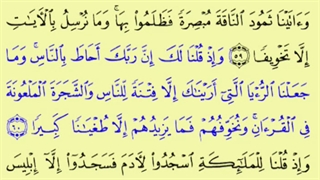 وَءَاتَيْنَا ثَمُودَ ٱلنَّاقَةَ مُبْصِرَةً فَظَلَمُوا۟ بِهَا ۚ وَمَا نُرْسِلُ بِٱلْـَٔايَٰتِ
إِلَّا تَخْوِيفًا ۝٥٩ وَإِذْ قُلْنَا لَكَ إِنَّ رَبَّكَ أَحَاطَ بِٱلنَّاسِ ۚ وَمَا
جَعَلْنَا ٱلرُّءْيَا ٱلَّتِىٓ أَرَيْنَٰكَ إِلَّا فِتْنَةً لِّلنَّاسِ وَٱلشَّجَرَةَ ٱلْمَلْعُونَةَ
فِى ٱلْقُرْءَانِ ۚ وَنُخَوِّفُهُمْ فَمَا يَزِيدُهُمْ إِلَّا طُغْيَٰنًا كَبِيرًا ۝٦٠
وَإِذْ قُلْنَا لِلْمَلَٰٓئِكَةِ ٱسْجُدُوا۟ لِءَادَمَ فَسَجَدُوٓا۟ إِلَّآ إِبْلِيسَ